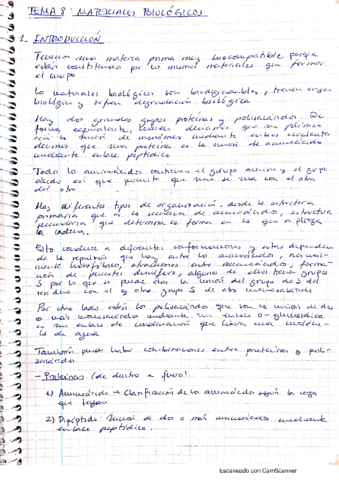 TEMA 8: MATERIALES BIOLÓGICOS
1. INTRODUCCIÓN
Tenemos una materia prima muy biocompatible porque
están constituidos por los mismos materiales que forman
el cuerpo
Los materiales biológicos son biodegradables, tienen origen
biológico y sufren degradación biológica
Hay dos grandes grupos proteínas y polisacáridos. De
forma equivalente, hemos decirnos que un polímero
es la unión de monómeros mediante enlaces covalentes
decimos que una proteína es la unión de aminoácidos
mediante enlace peptídico
Todos los aminoácidos contienen el grupo amino y el grupo
ácido así que permite que uno se una con el otro
del otro
Hay diferentes tipos de organización, desde la estructura
primaria que es la secuencia de aminoácidos, estructura
secundaria que determina la forma en la que se pliega
la cadena.
Esto conduce a diferentes conformaciones y estas dependen
de la repulsión que hay entre los aminoácidos, normal-
mente hidrofílicos, atracciones entre aminoácidos, forma-
ción de puentes disulfuro, algunos de ellos tienen grupos
S por lo que se puede dar la unión del grupo de S del
residuo con el otro grupo S de otro aminoácido
Por otro lado están los polisacáridos que son la unión de dos
o más monosacáridos mediante un enlace o-glucosídico
es un enlace de condensación que libera una molécu-
la de agua
También puede haber combinaciones entre proteínas y poli-
sacáridos
- Proteínas (de dentro a fuera)
1) Aminoácido → Clasificación de los aminoácidos según la carga
que tengan
2) Dipéptido: Unión de dos o más aminoácidos mediante
enlace peptídico.
Escaneado con CamScanner